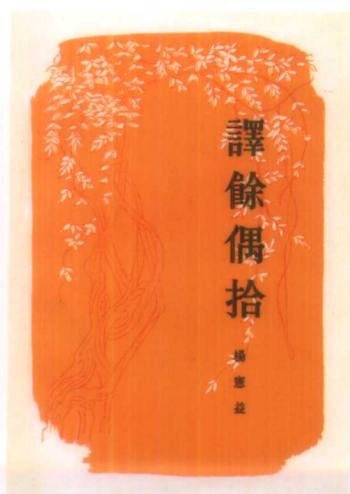 譯餘偶拾
楊憲益